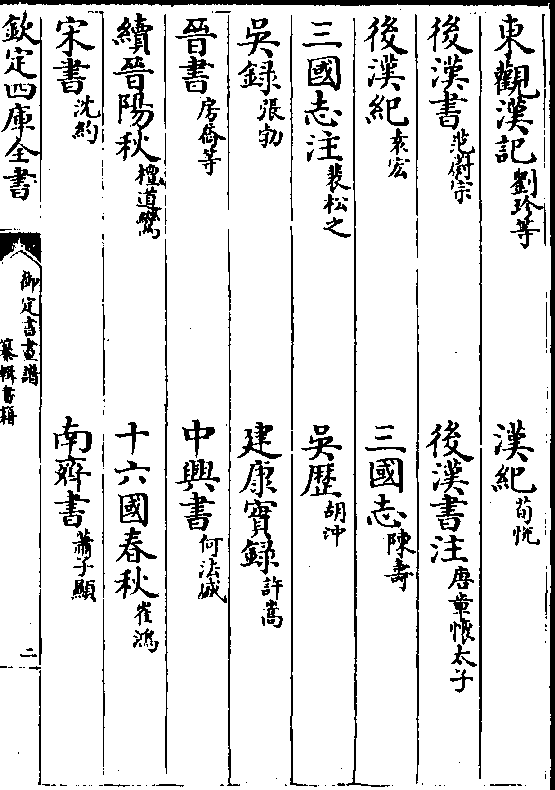 東觀漢記劉珍等 漢紀荀悅
後漢書范蔚宗 後漢書注唐章懷太子
後漢紀袁宏 三國志陳壽
三國志注裴松之 吳歷胡沖
吳錄張勃 建康實錄許嵩
晉書房喬等 中興書何法盛
續晉陽秋檀道鸞 十六國春秋崔鴻
宋書沈約 南齊書蕭子顯
欽定四庫全書
御定書畫譜
纂輯書籍
二